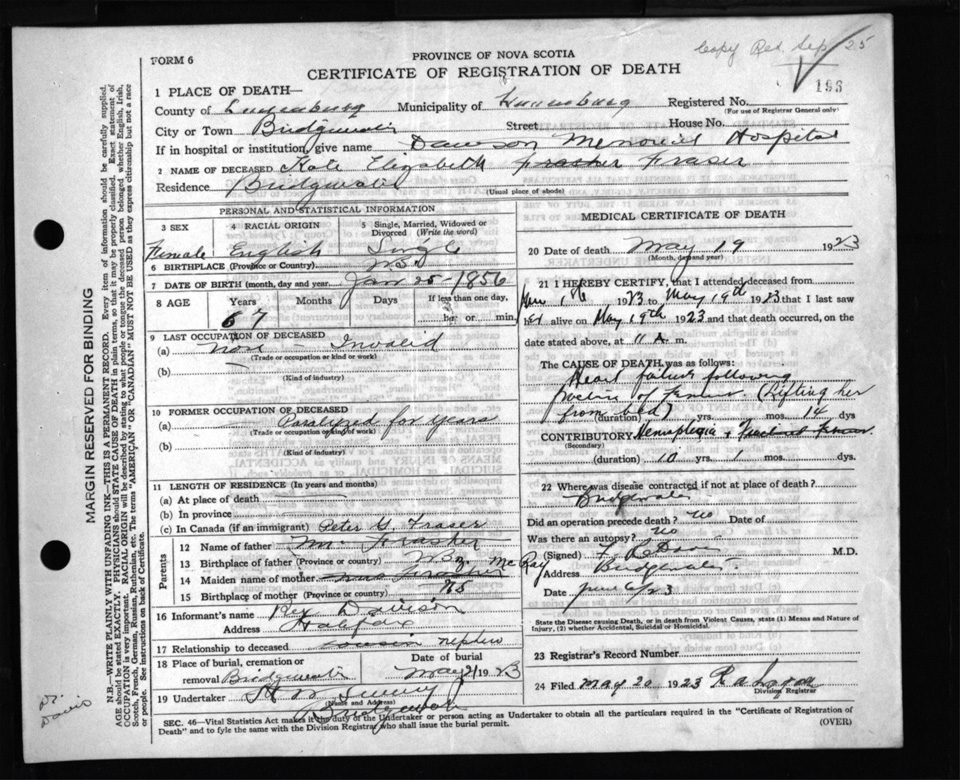 Copy Sep 25
PROVINCE OF NOVA SCOTIA
FORM 6
CERTIFICATE OF REGISTRATION OF DEATH
193
1 PLACE OF DEATH—
County of Lunenburg Municipality of Lunenburg Registered No.
(For use of Registrar General only)
City or Town Bridgewater Street House No.
If in hospital or institution, give name Dawson Memorial Hospital
2 NAME OF DECEASED Kate Elizabeth Frasher Fraser
Residence Bridgewater
(Usual place of abode)
PERSONAL AND STATISTICAL INFORMATION
3 SEX 4 RACIAL ORIGIN 5 Single, Married, Widowed or Divorced (Write the word)
Female English Single
6 BIRTHPLACE (Province or Country)
7 DATE OF BIRTH (month, day and year) Jan 25 - 1856
8 AGE Years Months Days If less than one day,
67 hr or min.
9 LAST OCCUPATION OF DECEASED
(a) None - Invalid
(Trade or occupation or kind of work)
(b)
(Kind of industry)
10 FORMER OCCUPATION OF DECEASED
(a) Paralyzed for years
(Trade or occupation or kind of work)
(b)
(Kind of industry)
11 LENGTH OF RESIDENCE (In years and months)
(a) At place of death
(b) In province
(c) In Canada (if an immigrant) Peter G. Fraser
Parents
12 Name of father Mr Frasher
13 Birthplace of father (Province or Country) McKay
14 Maiden name of mother
15 Birthplace of mother (Province or Country) NS
16 Informant's name Rex Davison
Address Halifax
17 Relationship to deceased cousin nephew
18 Place of burial, cremation or removal Bridgewater Date of burial May 21 1923
19 Undertaker
(Name and Address)
Bridgewater
MEDICAL CERTIFICATE OF DEATH
20 Date of death May 19 1923
(Month, day and year)
21 I HEREBY CERTIFY, that I attended deceased from
1923 to May 19th 1923 that I last saw
her alive on May 19th 1923 and that death occurred, on the
date stated above, at 11 A. m.
The CAUSE OF DEATH was as follows:
Heart failure following
fracture of femur. (Lifting her
from bed)
(duration) yrs. mos. 14 dys
CONTRIBUTORY Hemiplegia & Fractured Femur.
(Secondary)
(duration) 10 yrs. 1 mos. dys.
22 Where was disease contracted if not at place of death?
Bridgewater
Did an operation precede death? no Date of
Was there an autopsy? no
(Signed) M.D.
Address Bridgewater.
Date June 6/23
State the Disease causing Death, or in death from Violent Causes, state (1) Means and Nature of
Injury, (2) whether Accidental, Suicidal or Homicidal.
23 Registrar's Record Number
24 Filed May 20 1923
Division Registrar
SEC. 46—Vital Statistics Act makes it the duty of the Undertaker or person acting as Undertaker to obtain all the particulars required in the "Certificate of Registration of
Death" and to fyle the same with the Division Registrar who shall issue the burial permit.
(OVER)
MARGIN RESERVED FOR BINDING
N.B.—WRITE PLAINLY WITH UNFADING INK—THIS IS A PERMANENT RECORD. Every item of information should be carefully supplied.
AGE should be stated EXACTLY. PHYSICIANS should STATE CAUSE OF DEATH in plain terms, so that it may be properly classified. Exact statement of
OCCUPATION is very important. RACIAL ORIGIN will be described by stating to what people or tongue the deceased person belonged whether English, Irish,
Scotch, French, German, Russian, Ruthenian, etc. The terms "AMERICAN" or "CANADIAN" MUST NOT BE USED as they express citizenship but not a race
of people. See instructions on back of Certificate.
Dr.
Davis